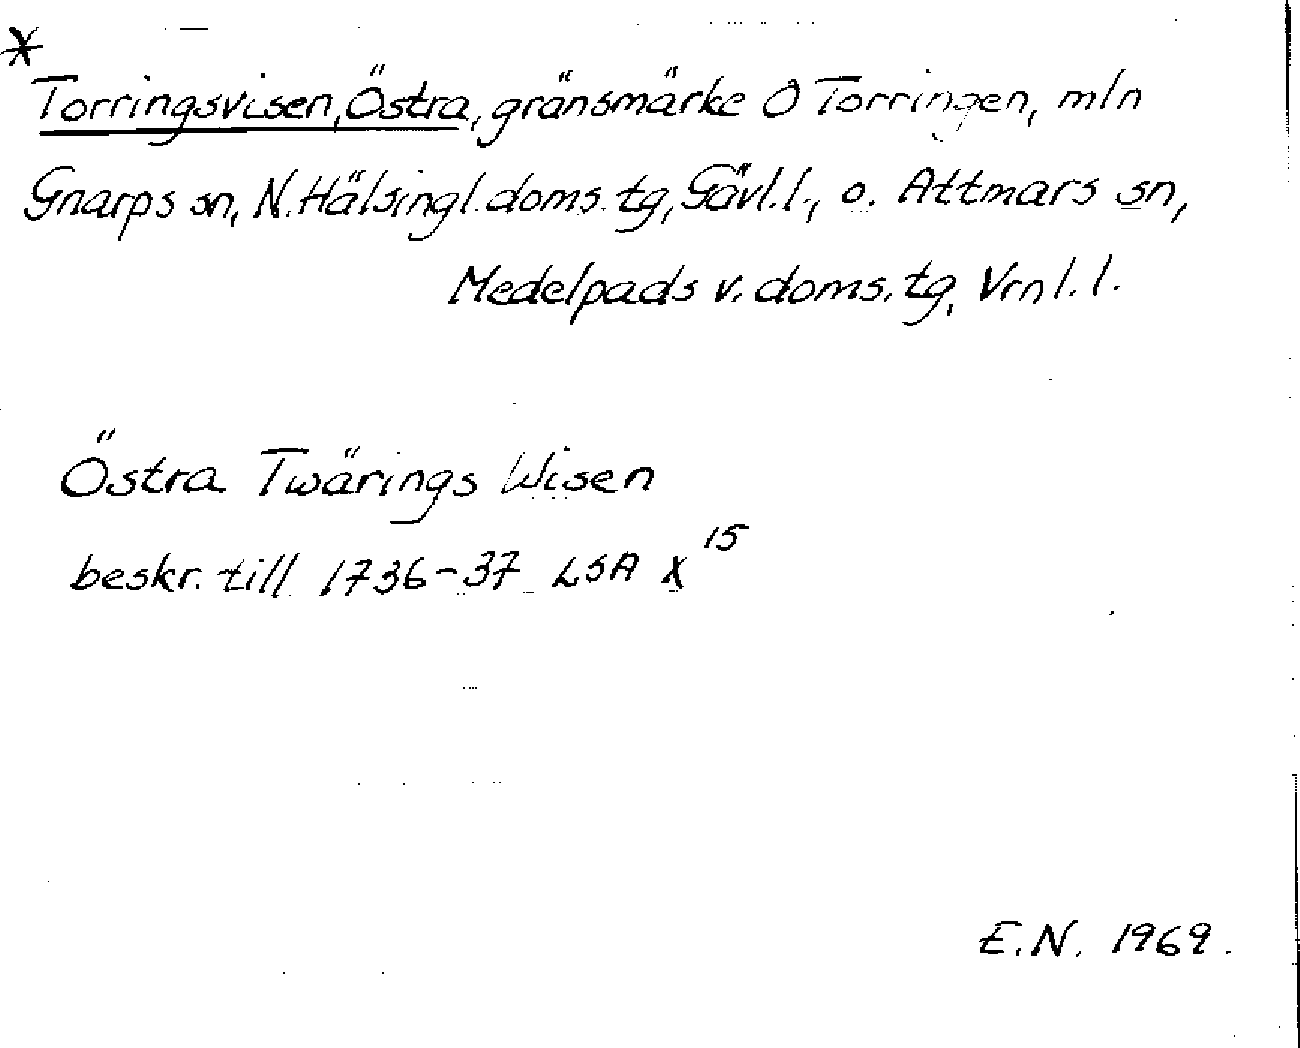 *
Torringsvisen, Östra, gränsmärke O Torringen, mln
Gnarps sn, N. Hälsingl. doms. tg, Gävl. l., o. Attmars sn,
Medelpads v. doms. tg, Vrnl. l.
Östra Twärings Wisen
beskr. till 1736-37 LSA X 15
E.N. 1969.